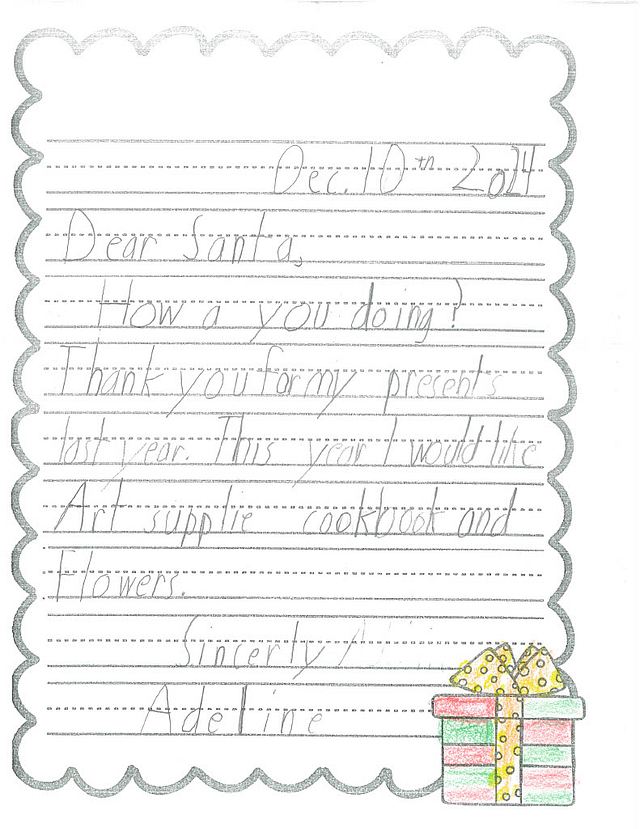 Dec. 10th 2024
Dear Santa,
How a you doing?
Thank you for my presents
last year. This year I would like
Art supplie cookbook and
Flowers.
Sincerly
Adeline